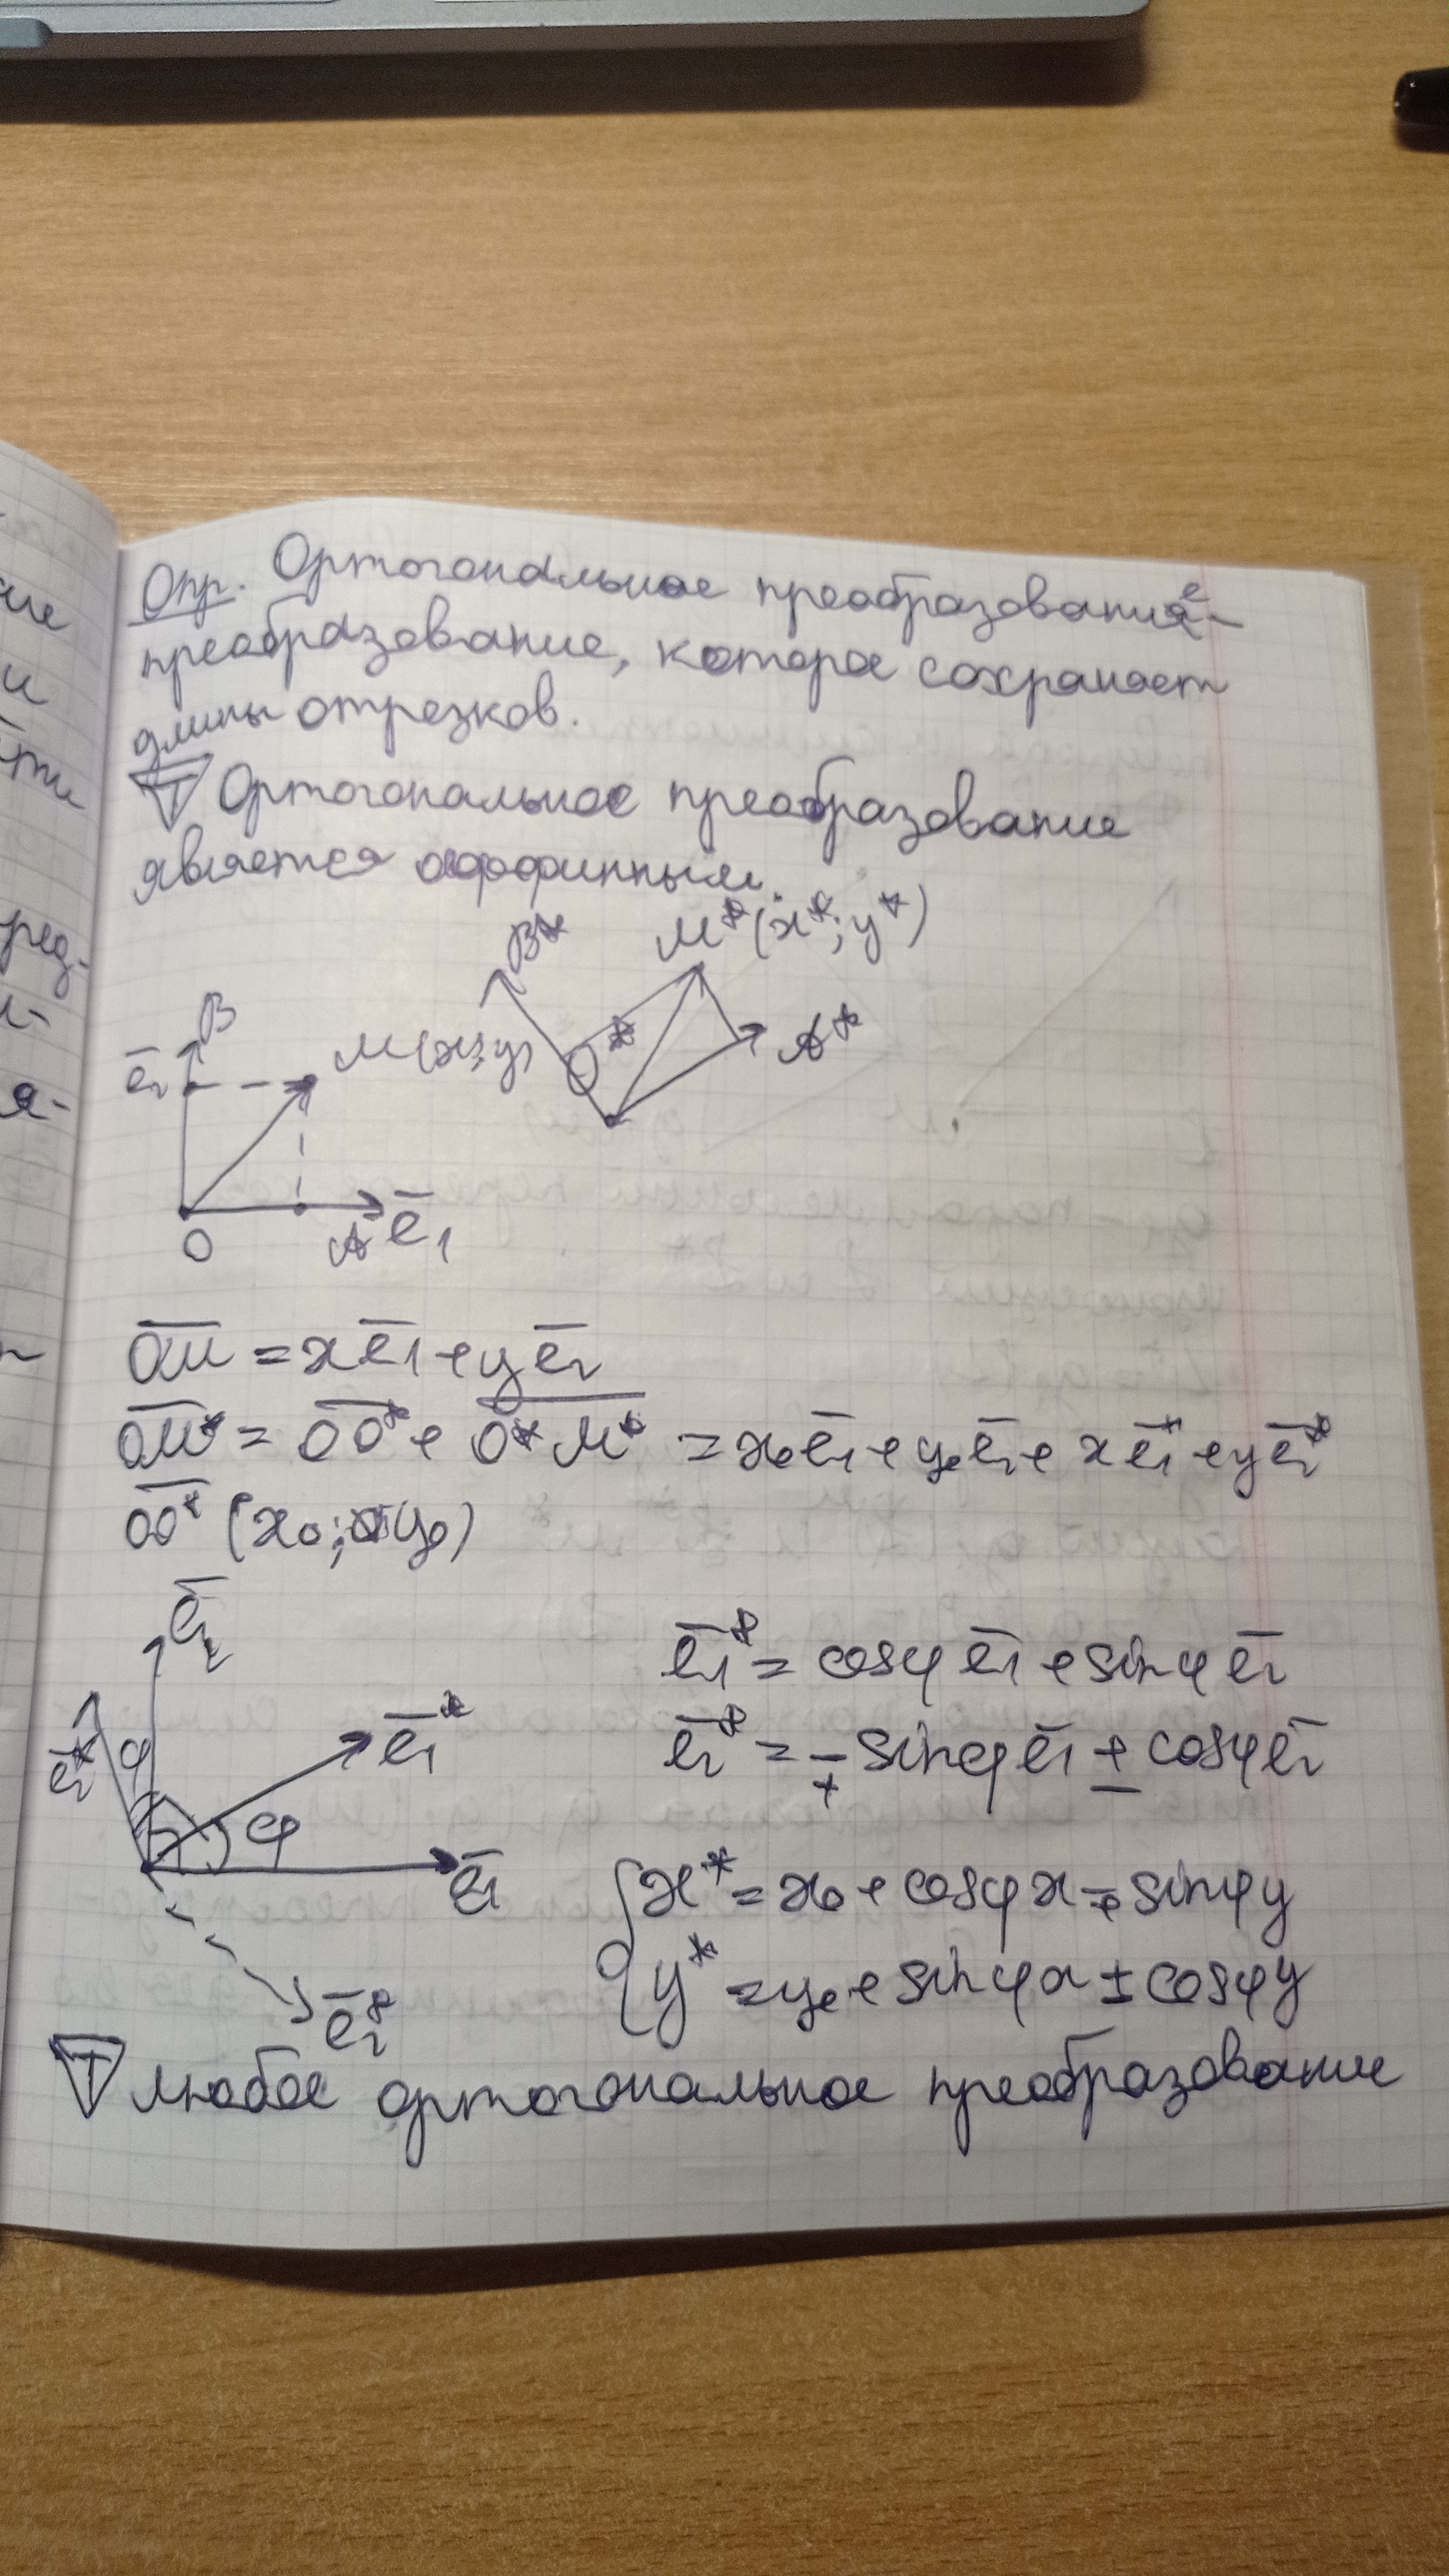 ие
и
ред-
я-
Опр. Ортогональное преобразование-
преобразование, которое сохраняет
длины отрезков.
T Ортогональное преобразование
является аффинным.
B* M*(x*; y*)
B
e̅₂ M(x; y) O* A*
O A e̅₁
O̅M̅ = xe̅₁ + ye̅₂
O̅M̅* = O̅O̅* + O̅*̅M̅* = x₀e̅₁ + y₀e̅₂ + xe̅₁* + ye̅₂*
O̅O̅* (x₀; y₀)
e̅₂
e̅₁* = cosφ e̅₁ + sinφ e̅₂
e̅₂* φ e̅₁* e̅₂* = ∓ sinφ e̅₁ ± cosφ e̅₂
φ e̅₁
{ x* = x₀ + cosφ x ∓ sinφ y
y* = y₀ + sinφ x ± cosφ y
e̅₂*
T Любое ортогональное преобразование